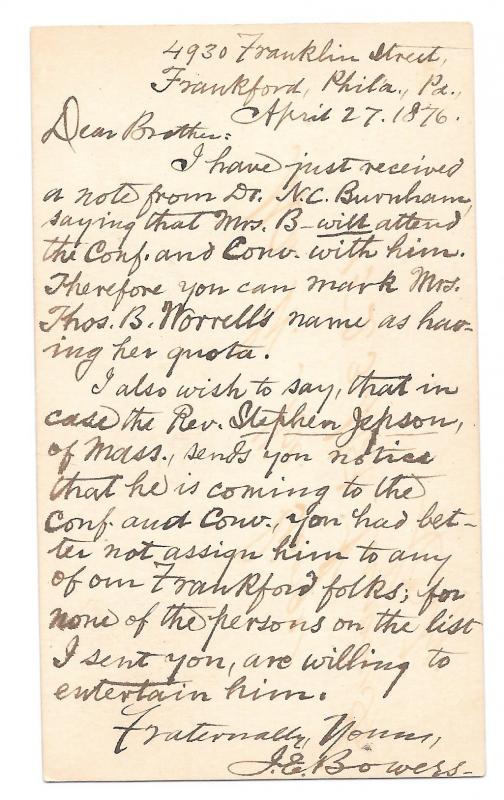 4930 Franklin Street,
Frankford, Phila., Pa.,
April 27. 1876.
Dear Brother:
I have just received
a note from Dr. N.C. Burnham,
saying that Mrs. B– will attend
the Conf. and Conv. with him.
Therefore you can mark Mrs.
Thos. B. Worrell's name as hav-
ing her quota.
I also wish to say, that in
case the Rev. Stephen Jepson,
of Mass., sends you notice
that he is coming to the
Conf. and Conv., you had bet-
ter not assign him to any
of our Frankford folks; for
none of the persons on the list
I sent you, are willing to
entertain him.
Fraternally, Yours,
J.E. Bowers–